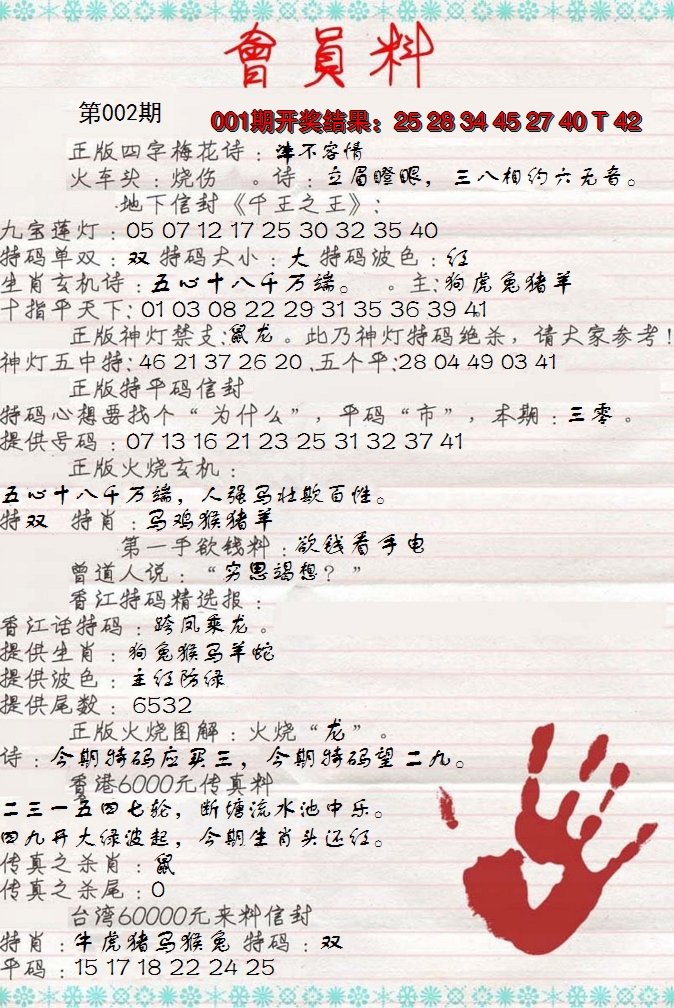 會員料
第002期
001期开奖结果：25 28 34 45 27 40 T 42
正版四字梅花诗：法不容情
火车头：烧伤 。诗：立眉瞪眼，三八相约六无音。
地下信封《千王之王》：
九宝莲灯：05 07 12 17 25 30 32 35 40
特码单双：双 特码大小：大 特码波色：红
生肖玄机诗：五心十八千万端。 。主：狗虎兔猪羊
十指平天下：01 03 08 22 29 31 35 36 39 41
正版神灯禁支：鼠龙。此乃神灯特码绝杀，请大家参考！
神灯五中特：46 21 37 26 20 .五个平：28 04 49 03 41
正版特平码信封
特码心想要找个“为什么”，平码“市”，本期：三零。
提供号码：07 13 16 21 23 25 31 32 37 41
正版火烧玄机：
五心十八千万端，人强马壮欺百性。
特双 特肖：马鸡猴猪羊
第一手欲钱料：欲钱看手电
曾道人说：“穷思竭想？”
香江特码精选报：
香江话特码：跨凤乘龙。
提供生肖：狗兔猴马羊蛇
提供波色：主红防绿
提供尾数：6532
正版火烧图解：火烧“龙”。
诗：今期特码应买三，今期特码望二九。
香港6000元传真料
二三一五四七轮，断塘流水池中乐。
四九开大绿波起，今期生肖头还红。
传真之杀肖：鼠
传真之杀尾：0
台湾60000元来料信封
特肖：牛虎猪马猴兔 特码：双
平码：15 17 18 22 24 25